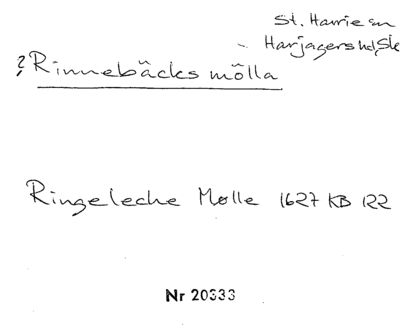 St. Harrie sn
Harjagers hd, Sk
? Rinnebäcks mölla
Ringeleche Mølle 1627 KB 122
Nr 20333